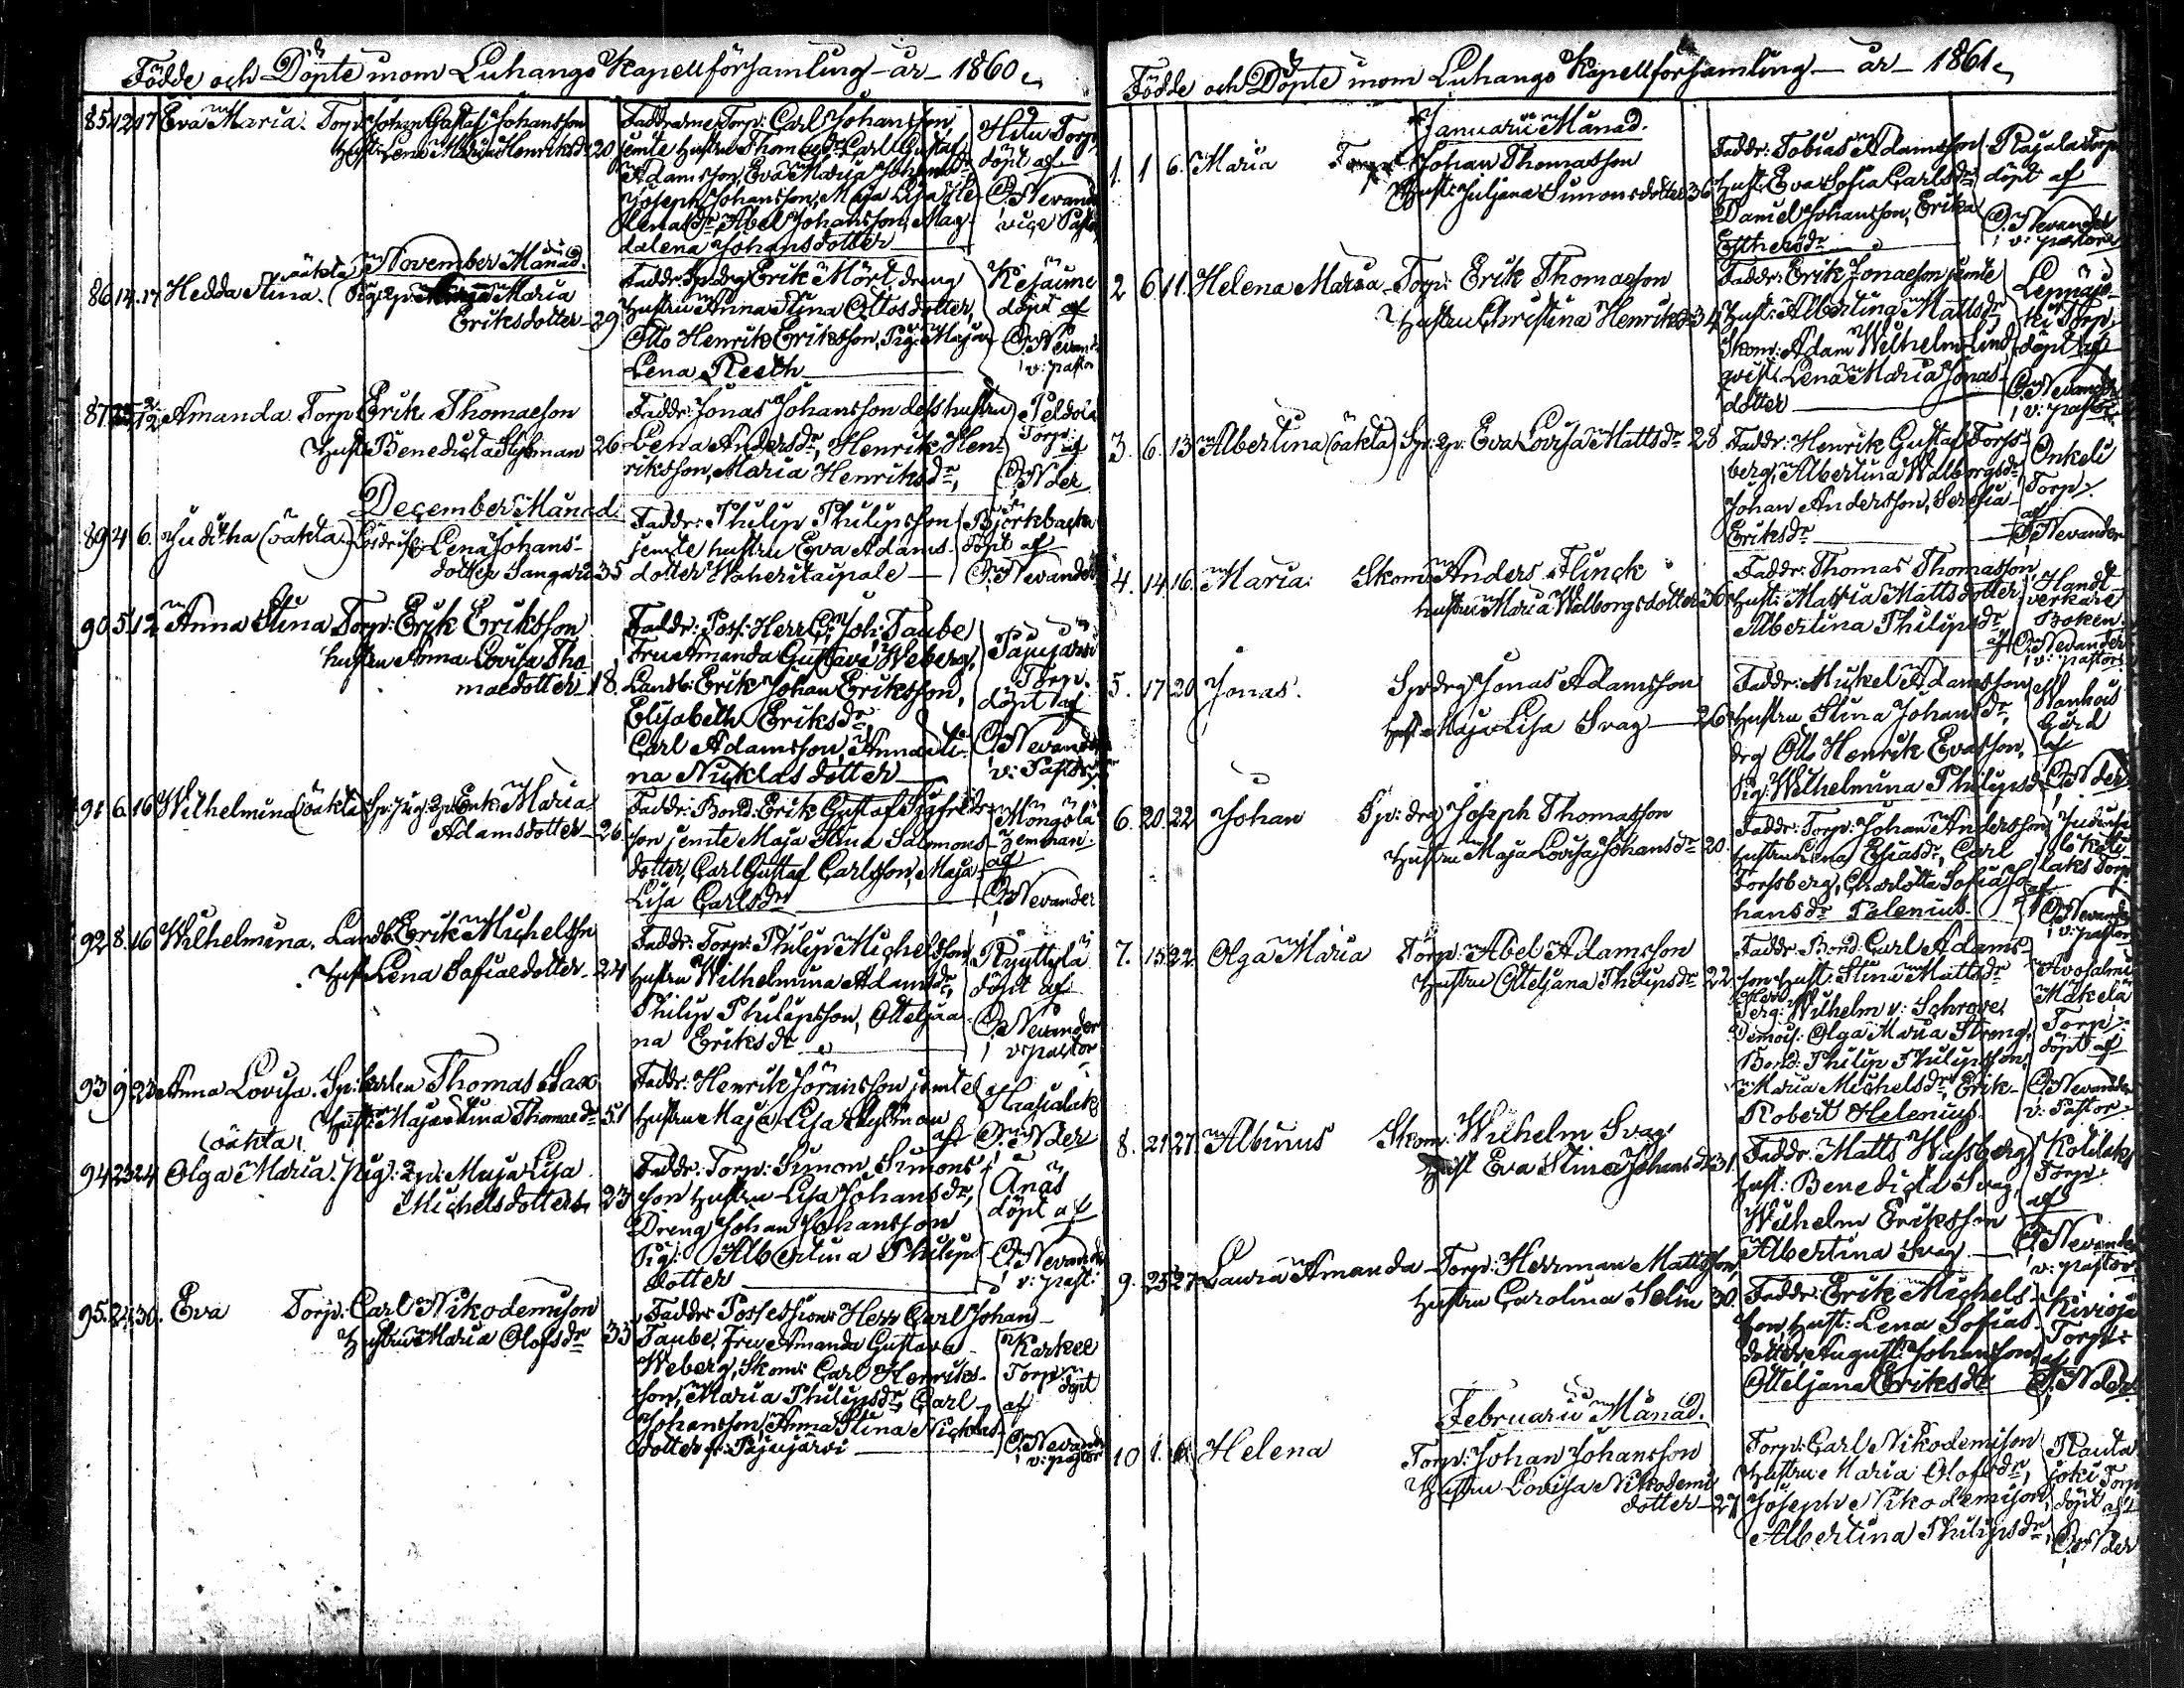 Födde och Döpte inom Luhango Kapellförsamling - år - 1860
85 12 17 Eva Maria. Torp: Johan Gustaf Johansson
Hust: Lena Maria Henriksdr 20
Faddrarne Torp: Carl Johansson
jemte Hustru Thomasdr Carl Gustaf
Adamsson, Eva Maria Johansdr
Joseph Johansson, Maja Lisa He-
lenasdr, Abel Johansson, Mag-
dalena Johansdotter
Hitu Torp
döpt af
O. Nevander
vice Pastor
November Månad.
86 14. 17 Hedda Stina. (oäkta) Maria
Eriksdotter 29
Faddr: Sp: drg Erik Mört dreng
Hustru Anna Stina Ottosdotter,
Otto Henrik Eriksson, Pig: Maja
Lena Resth
döpt af
O. Nevander
v: pastor
87 2/12 Amanda Torp Erik Thomasson
Hust: Benedicta 26
Faddr: Jonas Johansson dess hustru
Lena Andersdr, Henrik Hen-
riksson, Maria Henriksdr,
Peldola
Torp:
af
O. Nder
December Månad.
89 4 6. Juditha (oäkta) Lena Johans-
dotter 35
Faddr: Philip Philipsson
jemte hustru Eva Adams-
dotter Waheritaipale
Björkbacka
döpt af
O. Nevander
90 5 12 Anna Stina Torp: Erik Eriksson
hustru Anna Lovisa Tho-
masdotter 18.
Faddr: Poss: Herr C: Joh: Taube
Fru Amanda Gustava Weberg,
Landb: Erik Johan Eriksson,
Elisabeth Eriksdr,
Carl Adamsson, Anna Sti-
na Nicklasdotter
Pajujärvi
Torp.
döpt af
O. Nevander
v: Pastor
91 6 16 Wilhelmina (oäkta) Maria
Adamsdotter 26
Faddr: Bond: Erik Gustaf Sigfrids-
son jemte Maja Stina Salomons-
dotter, Carl Gustaf Carlsson, Maja
Lisa Carlsdr
Mongola
hemman
af
O. Nevander
92 8. 16 Wilhelmina. Landb: Erik Michelssn
Hust Lena Sofiaedotter 24
Faddr: Torp: Philip Michelsson
Hustru Wilhelmina Adamsdr,
Philip Philipsson, Otteljaa-
na Eriksdr
Ryyttylä
döpt af
O. Nevander
v: pastor
93 9. 23 Anna Lovisa. Sp: karlen Thomas Sax
Hust: Maja Stina Thomasdr 51
Faddr: Henrik Göransson jemte
hustru Maja Lisa
af O. Nder
(oäkta)
94 23 24 Olga Maria. Pig: Maja Lisa
Michelsdotter 23
Faddr: Torp: Simon Simons-
son Hustru Lisa Johansdr,
Dreng Johan Johansson
Pig: Albertina Philips-
dotter
Anas
döpt af
O. Nevander
v: past:
95. 27. 30. Eva Torp: Carl Nikodemison
Hustru Maria Olofsdr 33
Faddr: Possessions Herr Carl Johan
Taube, Fru Amanda Gustava
Weberg, Skom: Carl Henriks-
son, Maria Philipsdr, Carl
Johansson, Anna Stina Nicklas-
dotter fr: Pajujärvi
Karkee
Torp:
döpt
af
O. Nevander
v: pastor
Födde och Döpte inom Luhango Kapellförsamling - år - 1861
Januarii Månad.
1. 1 6. Maria Torp: Johan Thomasson
Hust: Juljana Simonsdotter 36
Faddr: Tobias Adamsson
Hust: Eva Sofia Carlsdr
Daniel Johansson, Erika
Esthersdr
Rajala Torp
döpt af
O. Nevander
v: pastor
2 6 11. Helena Maria Torp: Erik Thomasson
Hustru Christina Henriksdr 34
Faddr: Erik Jonaeson jemte
Hust: Albertina Mattsdr
Skom: Adam Wilhelm Lind-
qvist Lena Maria Jonas-
dotter
Torp.
döpt af
O. Nevander
v: pastor
3. 6. 13 Albertina (oäkta) Eva Lovisa Mattsdr 28
Faddr: Henrik Gustaf Forss-
berg, Albertina Walborgsdr
Johan Andersson, Serafia
Eriksdr
Onkeli
Torp.
af
O. Nevander
4. 14. 16. Maria. Skom: Anders Flinck
hustru Maria Walborgsdotter 36
Faddr: Thomas Thomasson
Hust: Maria Mattsdotter
Albertina Philipsdr
Handt
verkare
Boken.
af O. Nevander
v: pastor
5. 17 20 Jonas. Sp: drg Jonas Adamsson
hust Maja Lisa Svag 26
Faddr: Mickel Adamsson
Hustru Stina Johansdr,
drg Otto Henrik Evasson,
Pig: Wilhelmina Philipsdr
Wanhois
Gård
af
O. Nder
6. 20. 22 Johan Sp: drg Joseph Thomasson
Hustru Maja Lovisa Johansdr 20
Faddr: Torp: Johan Andersson
hustru Lena Esiasdr, Carl
Forssberg, Charlotta Sofia Jo-
hansdr Palenius.
af
O. Nevander
v: pastor
7. 15. 22. Olga Maria Torp: Abel Adamsson
Hustru Otteljana Philipsdr 22
Faddr: Bond: Carl Adams-
son Hust: Stina Mattsdr
Serg: Wilhelm v: Schrowe
Demois: Olga Maria Streng,
Bond: Philip Philipsson,
Maria Michelsdr, Erik
Robert Helenius
Avosalmi
Mäkelä
Torp.
döpt af
O. Nevander
v: Pastor
8. 21 27. Albinus Skom: Wilhelm Svag
Hust Eva Stina Johansdr 31.
Faddr: Matts Wassberg
hust: Benedicta Svag,
Wilhelm Eriksson
Albertina Svag
Torp.
af
O. Nevander
v: pastor
9. 25 27 Laura Amanda Torp: Herrman Mattsson,
Hustru Carolina Selin 30.
Faddr: Erik Michels-
son, Hust: Lena Sofias
dotter, August Johansson,
Otteljana Eriksdr
Kivioja
Torp:
af
O. Nder
Februarii Månad.
10 1. 6 Helena Torp: Johan Johansson
Hustru Lovisa Nikodemi
dotter 27
Torp: Carl Nikodemison
Hustru Maria Olofsdr,
Joseph Nikodemison,
Albertina Philipsdr,
Rauta
joki Torp
döpt af
O. Nder